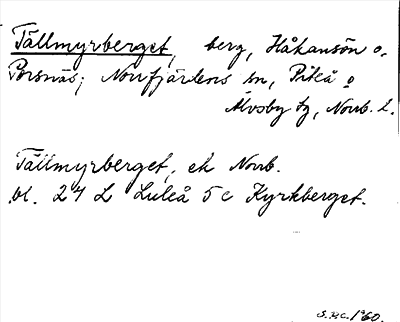 Tällmyrberget, berg, Håkansön o.
Porsnäs; Norrfjärdens sn, Piteå o
Älvsby tg, Norrb. l.
Tällmyrberget, ek Norrb.
bl. 24 L Luleå 5 c Kyrkberget.
1960.